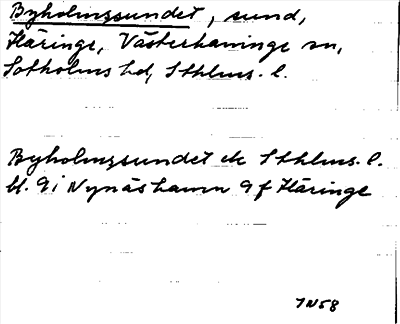 Byholmssundet, sund,
Häringe, Västerhaninge sn,
Sotholms hd, Sthlms. l.
Byholmssundet ek Sthlms. l.
bl. 9i Nynäshamn 9f Häringe
IN58